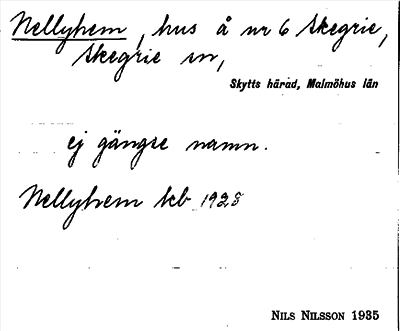 Nellyhem, hus å nr 6 Skegrie,
Skegrie sn,
Skytts härad, Malmöhus län
ej gängse namn.
Nellyhem kb 1928
NILS NILSSON 1935